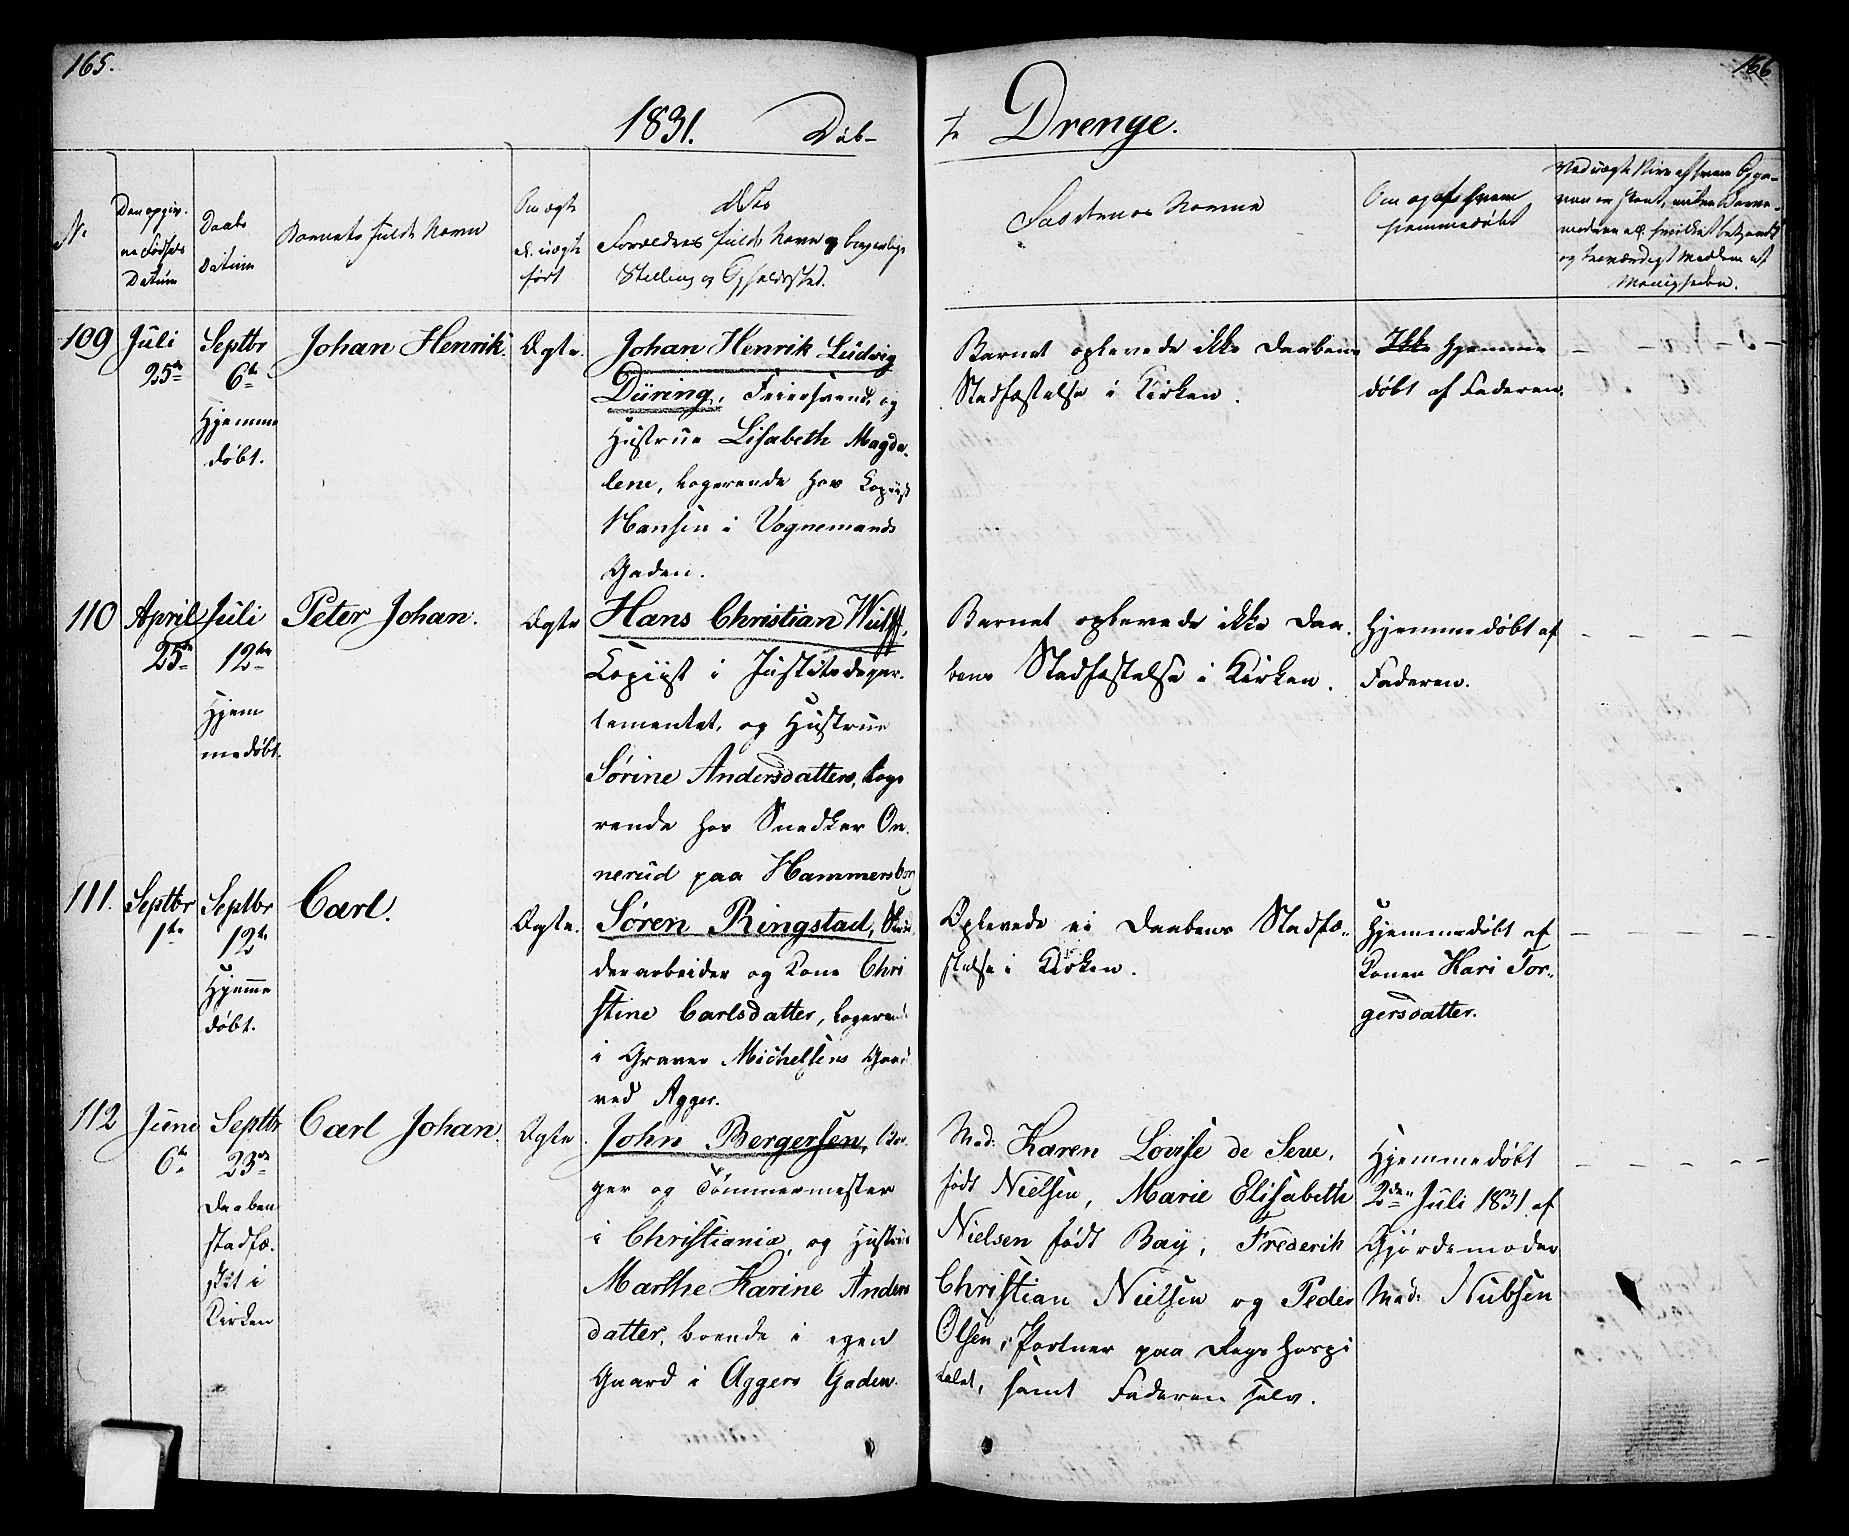 165.
166
1831. Døb-
te Drenge.
N.
Den opgiv-
ne Fødsels
Datum
Daabs
Datum
Barnets fulde Navn
Om ægte
el. uægte
født
Forældres fulde Navn og borgerlige
Stilling og Opholdssted.
Faddernes Navne
Om og af hvem
hjemmedøbt
109
Juli
25de
Septbr
6te
Hjemme
døbt.
Johan Henrik.
Ægte.
Johan Henrik Ludvig
Düring, Feiersvend, og
Hustrue Lisabeth Magda-
lene, logerende hos Copiist
Hansen i Vognemands
Gaden.
Barnet oplevede ikke Daabens
Stadfæstelse i Kirken.
Ikke Hjemme
døbt af Faderen.
110
April
25de
Juli
12te
Hjem
medøbt.
Peter Johan.
Ægte
Hans Christian Wulff,
Copiist i Justitsdepar-
tementet, og Hustrue
Sørine Andersdatter, loge
rende hos Snedker On-
nerud paa Hammersborg
Barnet oplevede ikke Daa-
bens Stadfæstelse i Kirken.
Hjemmedøbt af
Faderen.
111.
Septbr
1te
Septbr
12te
Hjemme
døbt.
Carl.
Ægte.
Søren Ringstad,
derarbeider og Kone Chri
stine Carlsdatter, logerend
i Graver Michelsens Gaard
ved Agger.
Oplevede ei Daabens Stadfæ-
stelse i Kirken.
Hjemmedøbt af
Konen Kari Tor-
gersdatter.
112
Juni
6te
Septbr
23de
Daaben
stadfæ-
stet i
Kirken
Carl Johan.
Ægte
John Bergersen, Bor-
ger og Tømmermester
i Christiania, og Hustrue
Marthe Karine Anders
datter, boende i egen
Gaard i Aggers Gaden.
Mad: Karen Lovise de Seue,
født Nielsen, Marie Elisabeth
Nielsen født Bay, Frederik
Christian Nielsen og Peder
Olsen, Portner paa Rigs Hospi
talet, samt Faderen selv.
Hjemmedøbt
2den Juli 1831 af
Gjordemoder
Mad: Nubsen